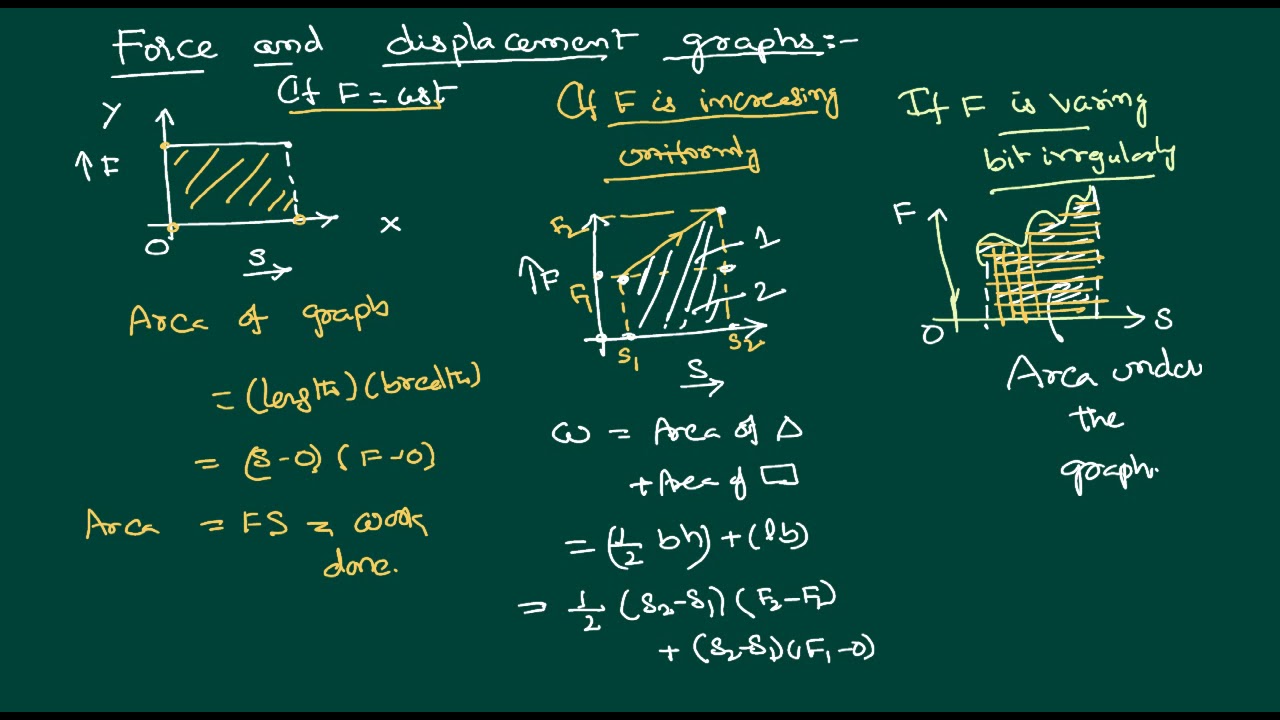 Force and displacement graphs:-
If F = cst
Y
↑ F
O
X
S →
Area of graph
= (length) (breadth)
= (S-0) (F-0)
Area = FS = work
done.
If F is increasing
uniformly
F2
↑F
F1
1
2
S1
S2
S →
W = Area of △
+ Area of ▭
= (1/2 bh) + (lb)
= 1/2 (S2-S1) (F2-F1)
+ (S2-S1) (F1-0)
If F is varing
bit irrgularly
F
O
S
Area under
the
graph.